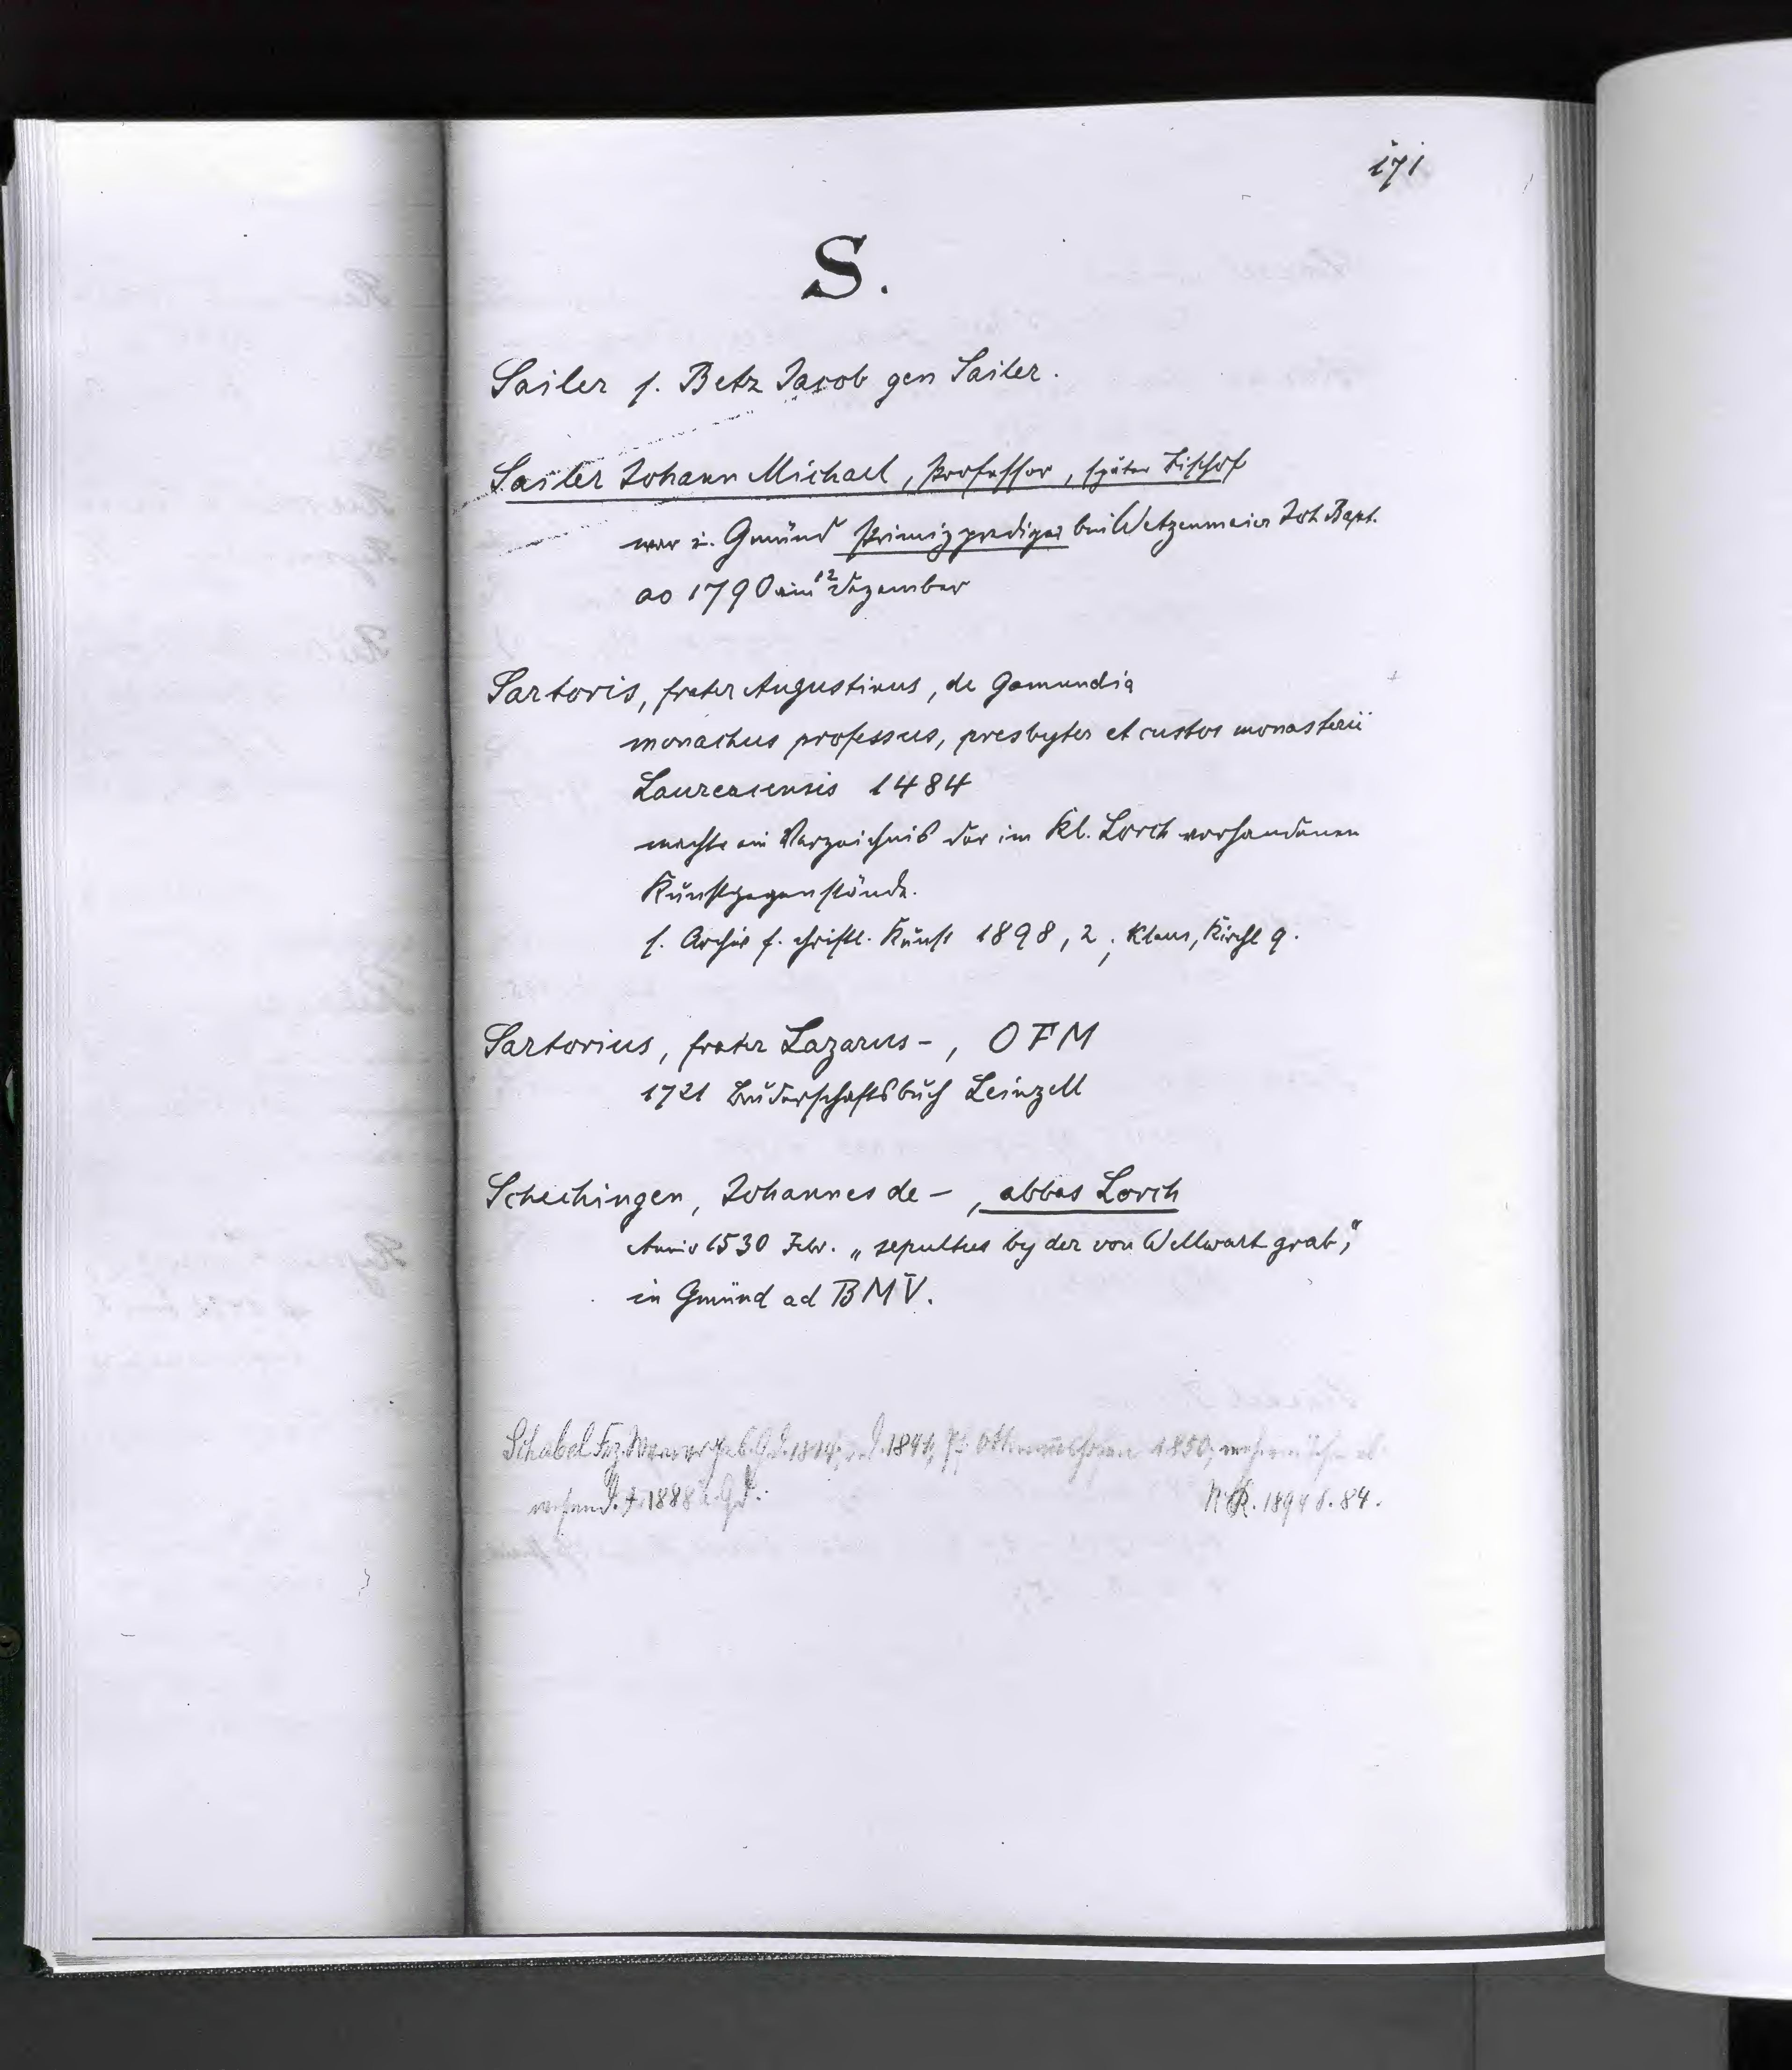 171
S.
Sailer s. Betz Jacob gen Sailer.
Sailer Johann Michael, Professor, später Bischof
war i. Gmünd Primizprediger bei Wetzenmeier Joh Bapt.
ao 1790 am 12 Dezember
Sartoris, frater Augustinus, de Gamundia
monachus professus, presbyter et custos monasterii
Laureacensis 1484
machte ein Verzeichnis der im Kl. Lorch vorhandenen
Kunstgegenstände.
s. Archiv f. christl. Kunst 1898, 2; Klaus, Kirchl 9.
Sartorius, frater Lazarus -, OFM
1721 Bruderschaftsbuch Leinzell
Schechingen, Johannes de -, abbas Lorch
Anno 1530 Febr. „sepultus by der von Wellwart grab",
in Gmünd ad BMV.
Schabel Frz. geb. Gd. 1814, 1841, Pf. 1850,
1888 i. Gd. 1894 S. 84.